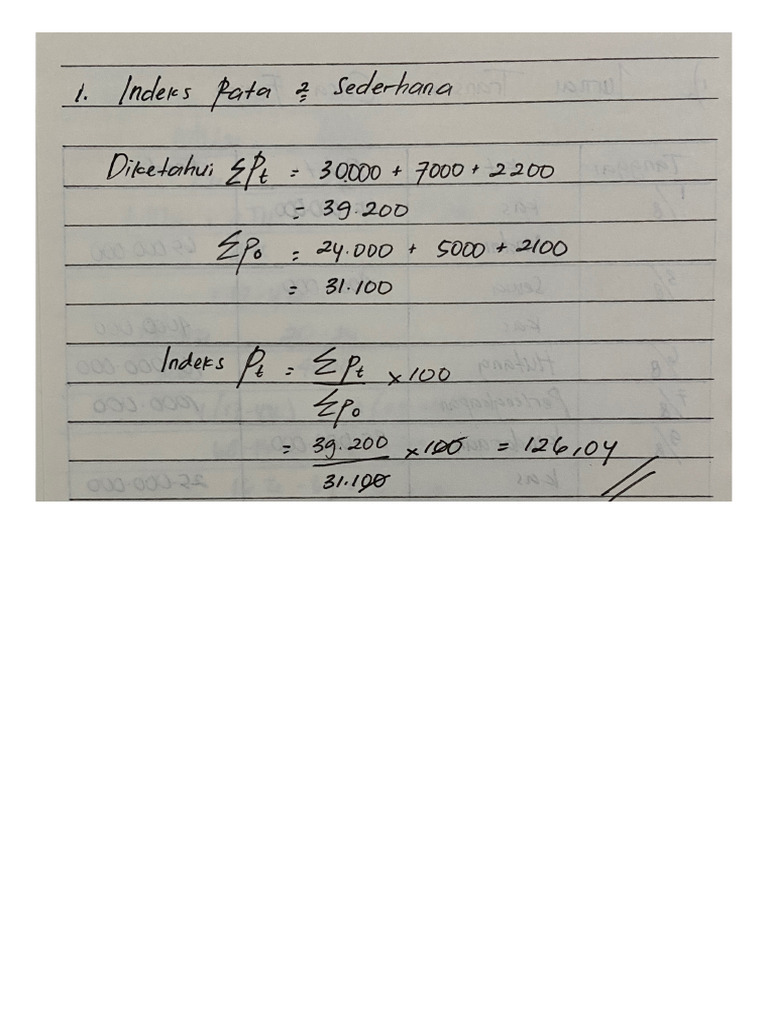 1. Indeks Rata 2 Sederhana
Diketahui ΣPt = 30.000 + 7000 + 2200
= 39.200
ΣPo = 24.000 + 5000 + 2100
= 31.100
Indeks Pt = ΣPt / ΣPo × 100
= 39.200 / 31.100 × 100 = 126,04